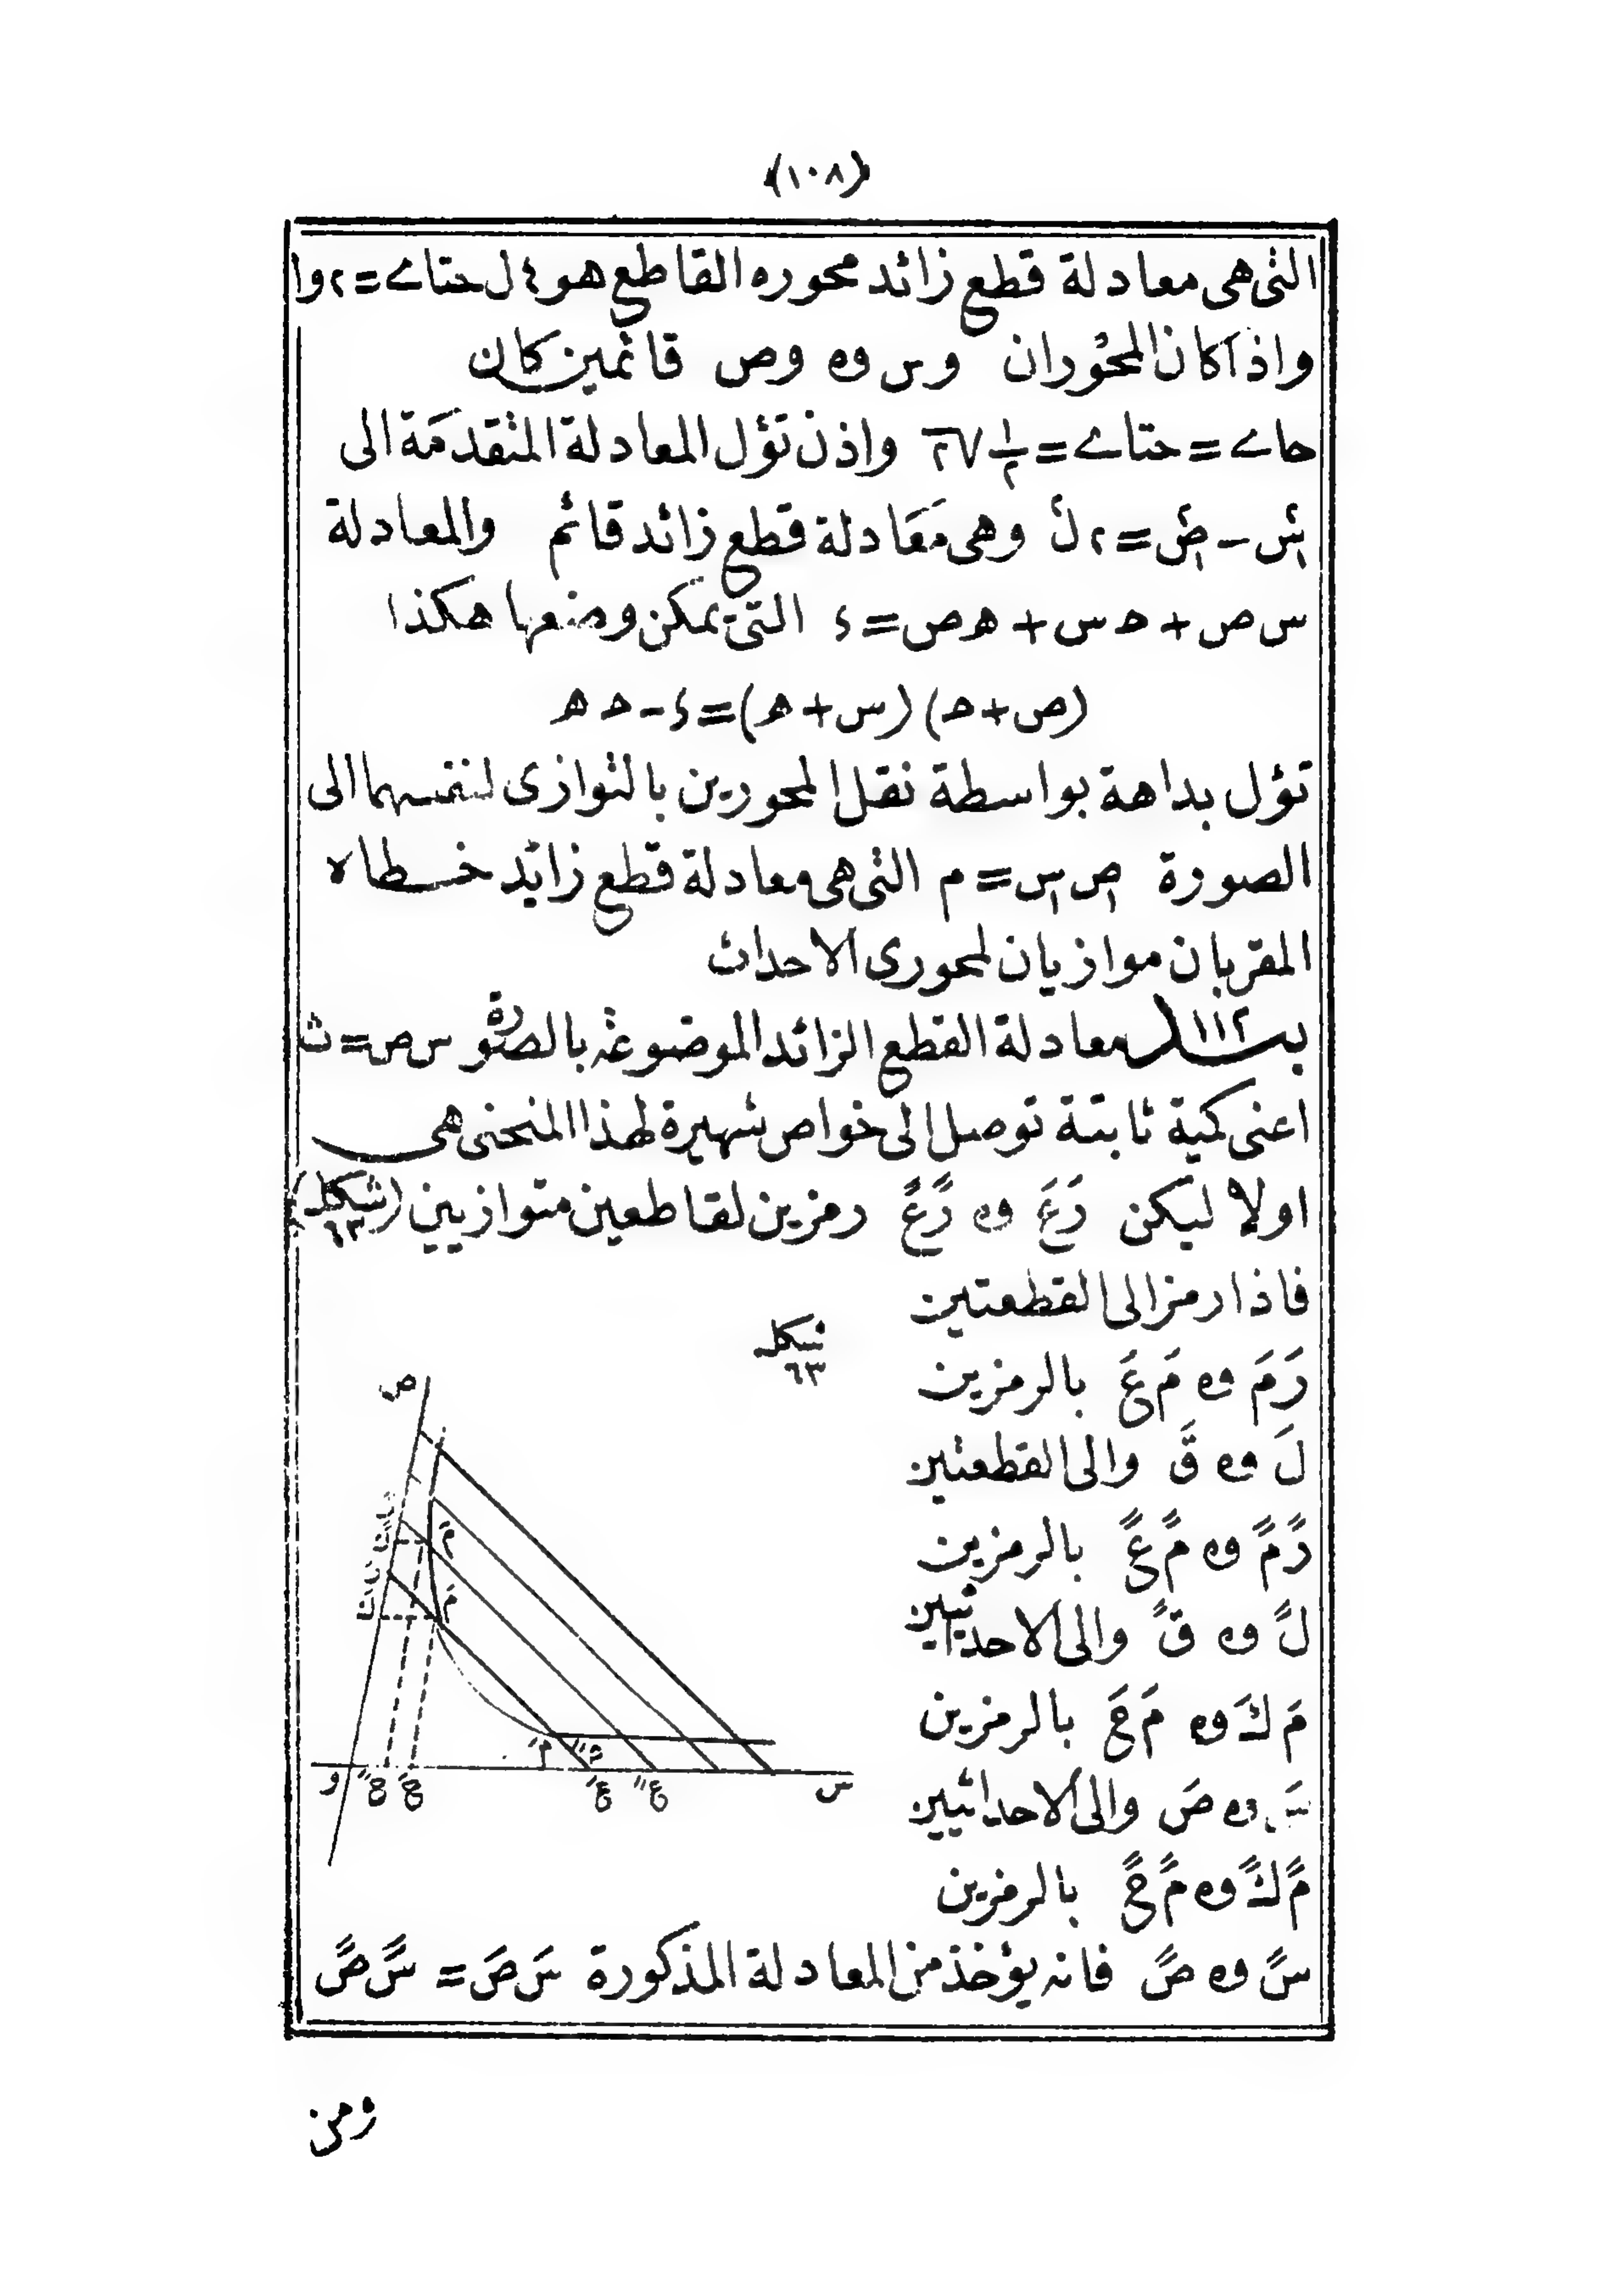 (١٠٨)
التى هى معادلة قطع زائد محوره القاطع هو ٤ ل حتاى = ٢ و ا
واذا كان المحوران وس وه وص قائمين كان
حاى = حتاى = ١/٢ √٢ واذن تؤل المعادلة المتقدمة الى
سَ٢ - صَ٢ = ٢ ل٢ وهى معادلة قطع زائد قائم والمعادلة
س ص + ح س + ه ص = ٤ التى يمكن وضعها هكذا
(ص + ح) (س + ه) = ٤ - ح ه
تؤل بداهة بواسطة نقل المحورين بالتوازى لنفسهما الى
الصورة ص س = م التى هى معادلة قطع زائد خطاه
المقربان موازيان لمحورى الاحداث
بند ١١٢ معادلة القطع الزائد الموضوعة بالصورة س ص = ث
اعنى كمية ثابتة توصل الى خواص شهيرة لهذا المنحنى هى
اولا ليكن رَعَ وه رًعً رمزين لقاطعين متوازيين (شكل ٦٣)
فاذا رمز الى القطعتين
شكل
٦٣
رَمَ وه مَعَ بالرمزين
لَ وه قَ والى القطعتين
رًمً وه مًعً بالرمزين
لً وه قً والى الاحداثيين
مَكَ وه مَحَ بالرمزين
سَ وه صَ والى الاحداثيين
مًكً وه مًحً بالرمزين
سً وه صً فانه يؤخذ من المعادلة المذكورة سَ صَ = سً صً
ص
و
س
ومن